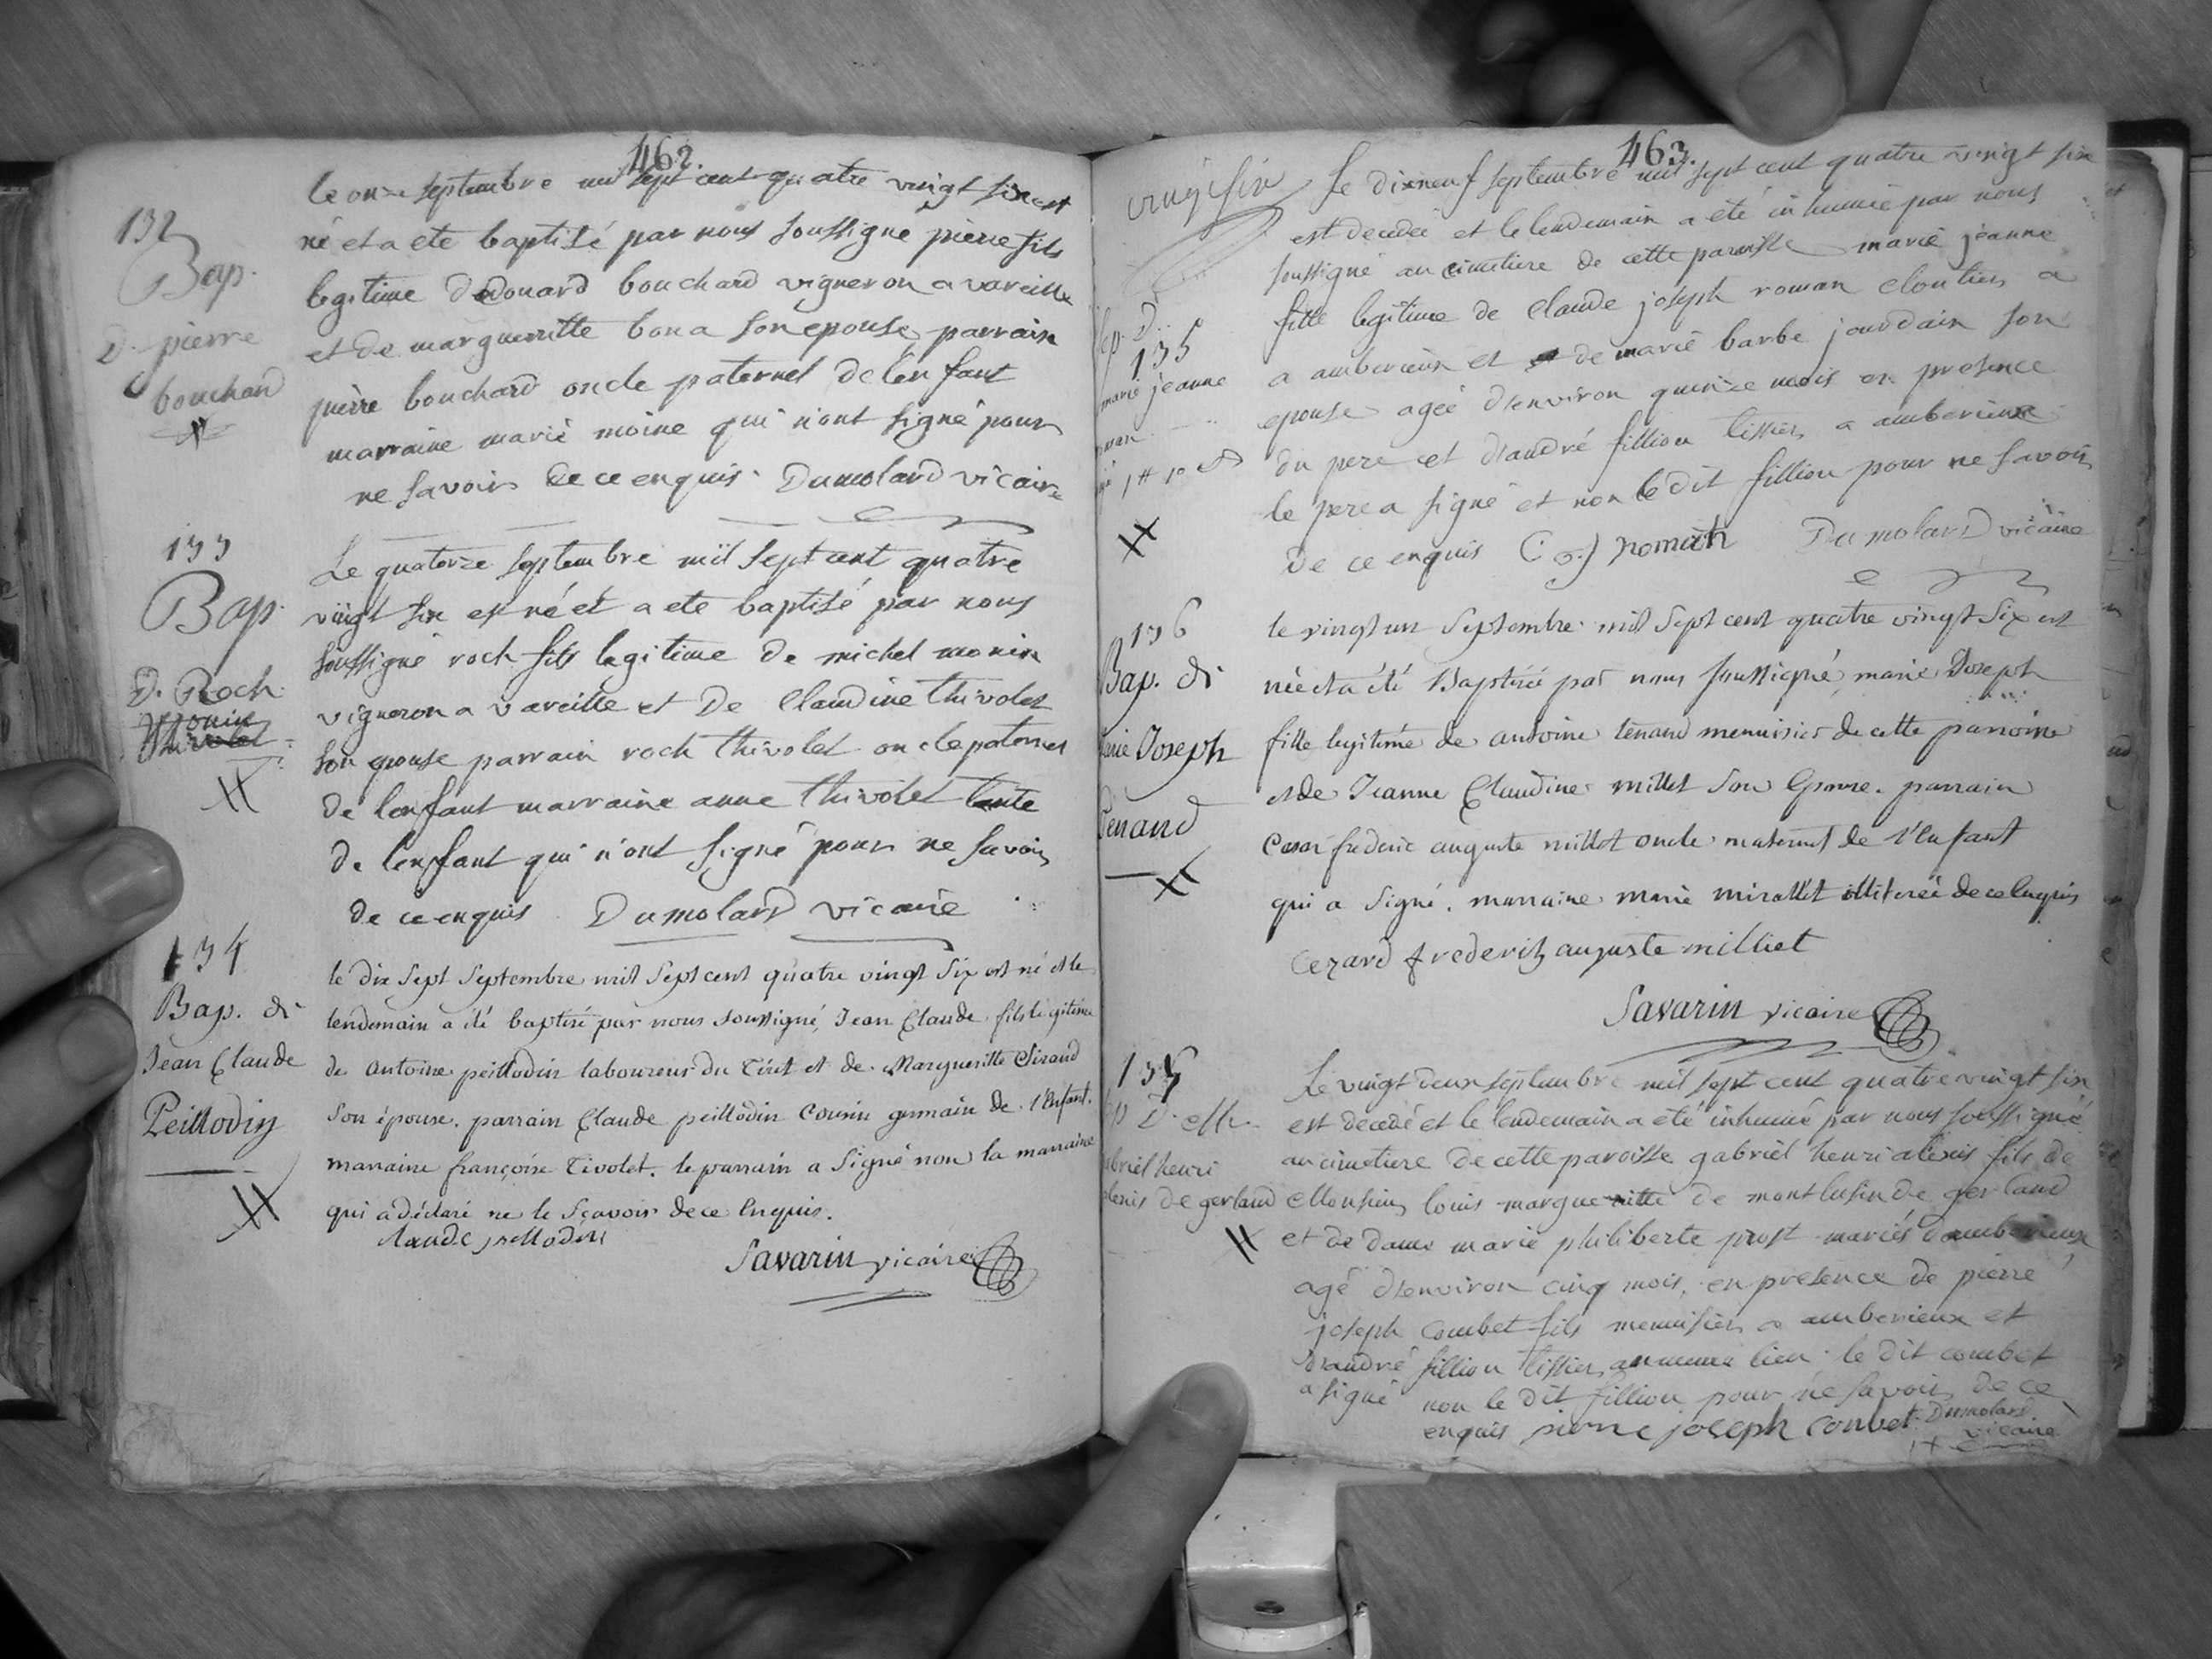 462.
132
Bap.
D. pierre
bouchard
le onze septembre mil sept cent quatre vingt six est
né et a ete baptisé par nous soussigné pierre fils
legitime d'edouard bouchard vigneron a vareille
et de marguerritte bona son epouse, parrain
pierre bouchard oncle paternel de l'enfant
marraine marie moine qui n'ont signé pour
ne savoir de ce enquis. Dumolard vicaire
133
Bap.
D. Roch
Monin
Thivolet
Le quatorze septembre mil sept cent quatre
vingt six est né et a ete baptisé par nous
soussigné roch fils legitime de michel monin
vigneron a vareille et De Claudine thivolet
son epouse parrain roch thivolet oncle paternel
de l'enfant marraine anne thivolet tante
de l'enfant qui n'ont signé pour ne savoir
de ce enquis Dumolard vicaire
134
Bap. di
Jean Claude
Peillodin
le dix sept Septembre mil Sept cent quatre vingt Six est né et le
lendemain a été baptisé par nous soussigné, Jean Claude fils légitime
de antoine peillodin laboureur du Tiret et de Margueritte Sirand
son épouse. parrain Claude peillodin cousin germain de l'Enfant.
marraine françoise Tivolet. le parrain a Signé non la marraine
qui a déclaré ne le Sçavoir de ce Enquis.
claude peillodin
Savarin vicaire
463.
vingt six
Sep. D.
135
marie jeanne
roman
1# 10
Le dixneuf septembre mil sept cent quatre vingt six
est decedée et le lendemain a été inhumée par nous
soussigné au cimetiere de cette paroisse marie jeanne
fille legitime de Claude joseph roman cloutier a
a amberieux et de marie barbe jourdain son
epouse agée d'environ quinze mois en presence
du pere et d'andré fillion tissier a amberieux
le pere a signé et non le dit fillion pour ne savoir
de ce enquis C j roman Dumolard vicaire
136
Bap. di
marie Joseph
Tenand
le vingt un Septembre mil Sept cent quatre vingt Six est
née et a été Baptisée par nous soussigné, marie Joseph
fille legitime de antoine tenand menuisier de cette paroisse
et de Jeanne Claudine millet Son Epouse. parrain
Cesar frederic auguste millet oncle maternel de l'Enfant
qui a Signé. marraine marie mirallet illiterée de ce Enquis
Cezard frederik auguste milliet
Savarin vicaire
137
Sep D.
gabriel henri
alexis de gerland
Le vingt deux septembre mil sept cent quatre vingt six
est decedé et le lendemain a été inhumé par nous soussigné
au cimetiere de cette paroisse gabriel henri alexis fils de
Monsieur louis margueritte de montlusin de gerland
et de dame marie philiberte prost mariés d'amberieux
agé d'environ cinq mois, en presence de pierre
joseph combet fils menuisier a amberieux et
d'andré fillion tissier au meme lieu. le dit combet
a signé non le dit fillion pour ne savoir de ce
enquis pierre joseph conbet Dumolard
vicaire